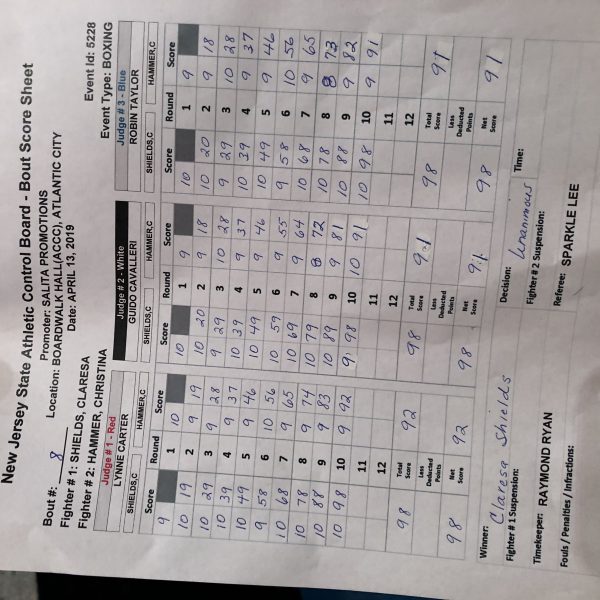 New Jersey State Athletic Control Board - Bout Score Sheet
Promoter: SALITA PROMOTIONS
Bout #: 8 Location: BOARDWALK HALL(ACCC), ATLANTIC CITY
Date: APRIL 13, 2019
Fighter # 1: SHIELDS, CLARESA Event Id: 5228
Fighter # 2: HAMMER, CHRISTINA Event Type: BOXING
Judge # 1 - Red Judge # 2 - White Judge # 3 - Blue
LYNNE CARTER GUIDO CAVALLERI ROBIN TAYLOR
SHIELDS,C HAMMER,C SHIELDS,C HAMMER,C SHIELDS,C HAMMER,C
Score Round Score Score Round Score Score Round Score
9 1 10 10 1 9 10 1 9
10 19 2 9 19 10 20 2 9 18 10 20 2 9 18
10 29 3 9 28 9 29 3 10 28 9 29 3 10 28
10 39 4 9 37 10 39 4 9 37 10 39 4 9 37
10 49 5 9 46 10 49 5 9 46 10 49 5 9 46
9 58 6 10 56 10 59 6 9 55 9 58 6 10 56
10 68 7 9 65 10 69 7 9 64 10 68 7 9 65
10 78 8 9 74 10 79 8 8 72 10 78 8 8 73
10 88 9 9 83 10 89 9 9 81 10 88 9 9 82
10 98 10 9 92 9 98 10 10 91 10 98 10 9 91
11 11 11
12 12 12
98 Total Score 92 98 Total Score 91 98 Total Score 91
Less Deducted Points Less Deducted Points Less Deducted Points
98 Net Score 92 98 Net Score 91 98 Net Score 91
Winner: Claressa Shields Decision: Unanimous Time:
Fighter # 1 Suspension: Fighter # 2 Suspension:
Timekeeper: RAYMOND RYAN Referee: SPARKLE LEE
Fouls / Penalties / Infractions: